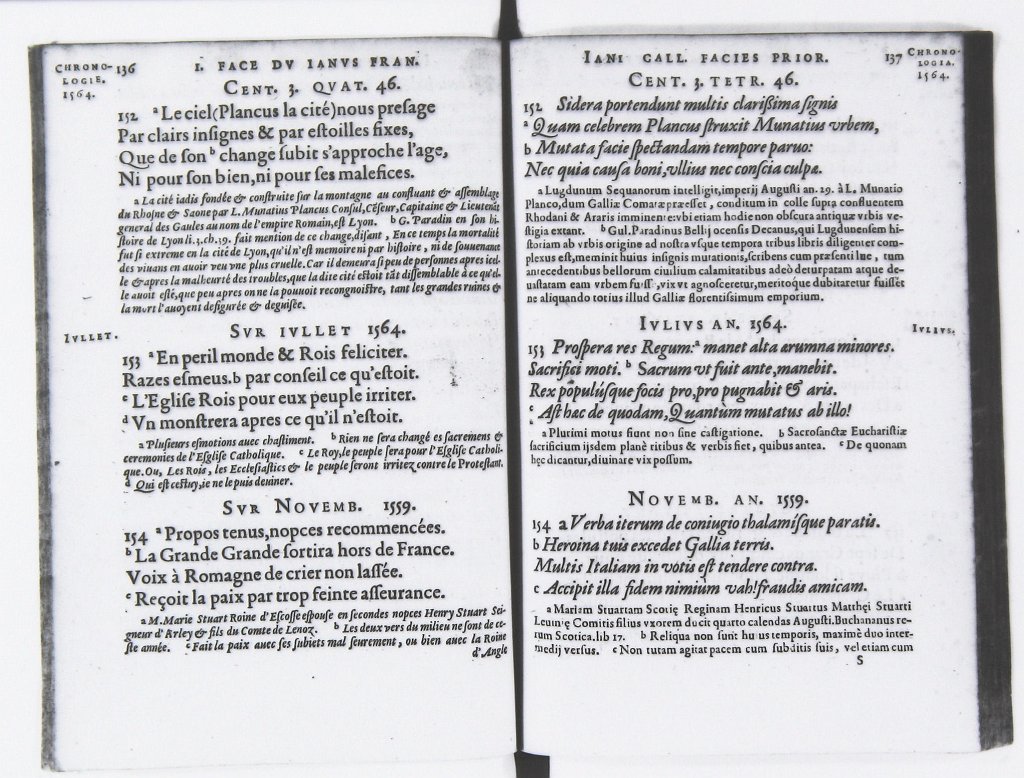 CHRONO-
LOGIE.
1564.
136
I. FACE DV IANVS FRAN.
CENT. 3. QVAT. 46.
152 ᵃ Le ciel (Plancus la cité) nous preſage
Par clairs inſignes & par eſtoilles fixes,
Que de ſon ᵇ change ſubit s'approche l'age,
Ni pour ſon bien, ni pour ſes maleſices.
a La cité iadis fondée & conſtruite ſur la montagne au confluant & aſſemblage
du Rhoſne & Saone par L. Munatius Plancus Conſul, Céſeur, Capitaine & Lieutenāt
general des Gaules au nom de l'empire Romain, eſt Lyon. b G. Paradin en ſon hi-
ſtoire de Lyon li. 3. ch. 39. fait mention de ce change, diſant, En ce temps la mortalité
fut ſi extreme en la cité de Lyon, qu'il n'eſt memoire ni par hiſtoire, ni de ſouuenance
des viuans en auoir veu vne plus cruelle. Car il demeura ſi peu de perſonnes apres icel-
le & apres la malheurté des troubles, que la dite cité eſtoit tāt diſſemblable à ce qu'el-
le auoit eſté, que peu apres on ne la pouuoit recongnoiſtre, tant les grandes ruines &
la mort l'auoyent deſigurée & deguiſée.
IVLLET.
SVR IVLLET 1564.
153 ᵃ En peril monde & Rois feliciter.
Razes eſmeus. b par conſeil ce qu'eſtoit.
ᶜ L'Egliſe Rois pour eux peuple irriter.
ᵈ Vn monſtrera apres ce qu'il n'eſtoit.
a Pluſieurs eſmotions auec chaſtiment. b Rien ne ſera changé es ſacremens &
ceremonies de l'Egliſe Catholique. c Le Roy, le peuple ſera pour l'Egliſe Catholi-
que. Ou, Les Rois, les Eccleſiaſtics & le peuple ſeront irritez contre le Proteſtant.
d Qui eſt ceſtuy, ie ne le puis deuiner.
SVR NOVEMB. 1559.
154 ᵃ Propos tenus, nopces recommencées.
ᵇ La Grande Grande ſortira hors de France.
Voix à Romagne de crier non laſſée.
ᶜ Reçoit la paix par trop feinte aſſeurance.
a M. Marie Stuart Roine d'Eſcoſſe eſpouſe en ſecondes nopces Henry Stuart Sei-
gneur d'Arley & fils du Comte de Lenoz. b Les deux vers du milieu ne ſont de ce-
ſte année. c Fait la paix auec ſes ſubiets mal ſeurement, ou bien auec la Roine
d'Angle
IANI GALL. FACIES PRIOR.
137
CHRONO-
LOGIA.
1564.
CENT. 3. TETR. 46.
152 Sidera portendunt multis clariſſima ſignis
ᵃ Quam celebrem Plancus ſtruxit Munatius vrbem,
b Mutata facie ſpectandam tempore paruo:
Nec quia cauſa boni, vllius nec conſcia culpæ.
a Lugdunum Sequanorum intelligit, imperij Auguſti an. 29. à L. Munatio
Planco, dum Galliæ Comatæ præeſſet, conditum in colle ſupra confluentem
Rhodani & Araris imminente: vbi etiam hodie non obſcura antiquæ vrbis ve-
ſtigia extant. b Gul. Paradinus Bellijocenſis Decanus, qui Lugdunenſem hi-
ſtoriam ab vrbis origine ad noſtra vſque tempora tribus libris diligenter com-
plexus eſt, meminit huius inſignis mutationis, ſcribens cum præſenti lue, tum
antecedentibus bellorum ciuilium calamitatibus adeò deturpatam atque de-
uaſtatam eam vrbem fuiſſe, vix vt agnoſceretur, meritoque dubitaretur fuiſſet
ne aliquando totius illud Galliæ florentiſſimum emporium.
IVLIVS AN. 1564.
IVLIVS.
153 Proſpera res Regum: ᵃ manet alta ærumna minores.
Sacrifici moti. ᵇ Sacrum vt fuit ante, manebit.
Rex populúſque focis pro, pro pugnabit & aris.
ᶜ Aſt hæc de quodam, Quantùm mutatus ab illo!
a Plurimi motus fiunt non ſine caſtigatione. b Sacroſanctæ Euchariſtiæ
ſacrificium ijſdem planè ritibus & verbis fiet, quibus antea. c De quonam
hęc dicantur, diuinare vix poſſum.
NOVEMB. AN. 1559.
154 a Verba iterum de coniugio thalamíſque paratis.
b Heroina tuis excedet Gallia terris.
Multis Italiam in votis eſt tendere contra.
c Accipit illa fidem nimiùm vah! fraudis amicam.
a Mariam Stuartam Scotię Reginam Henricus Stuartus Matthęi Stuarti
Leuinię Comitis filius vxorem ducit quarto calendas Auguſti. Buchananus re-
rum Scotica. lib 17. b Reliqua non ſunt huius temporis, maximè duo inter-
medij verſus. c Non tutam agitat pacem cum ſubditis ſuis, vel etiam cum
S